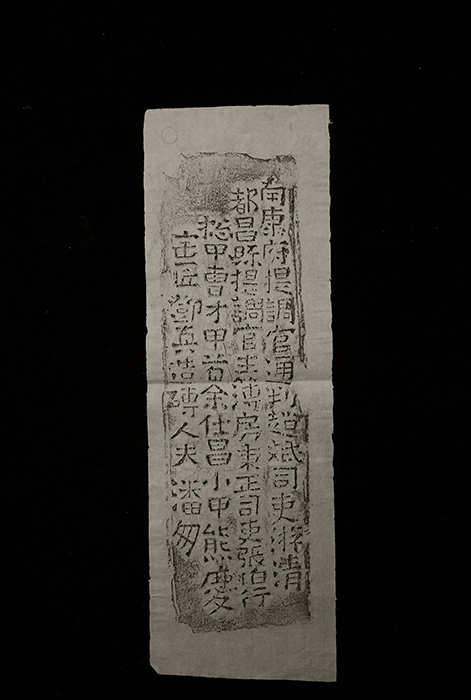 南康府提調官通判趙斌司吏游清
都昌縣提調官主簿房秉正司吏張伯行
揔甲曹才甲首余仕昌小甲熊受
匠鄧真造磚人夫潘匆